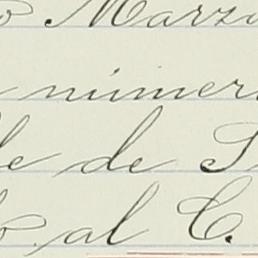 o Marzo
número
le de S
o al C.